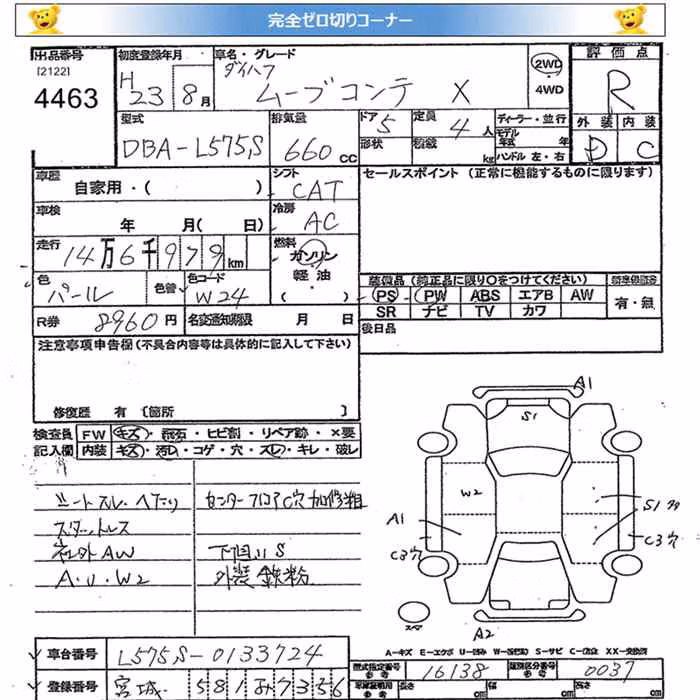 完全ゼロ切りコーナー
出品番号
[2122]
4463
初度登録年月
H23 8月
車名・グレード
ダイハツ
ムーブコンテ X
2WD
4WD
評価点
R
外装 内装
D C
型式
DBA-L575S
排気量
660 CC
ドア 5
形状
定員 4 人
積載 kg
ディーラー・並行
モデル
年式 年
ハンドル 左・右
車歴
自家用・( )
シフト
CAT
セールスポイント (正常に機能するものに限ります)
車検
年 月( 日)
冷房
AC
走行
14万6千979km
燃料
ガソリン
軽油
( )
色
パール
色替
色コード
W24
装備品 (純正品に限り○をつけてください)
PS PW ABS エアB AW
SR ナビ TV カワ
有・無
R券 8960円
名変通知期限 月 日
後日品
注意事項申告欄 (不具合内容等は具体的に記入して下さい)
修復歴 有 [箇所 ]
検査員
記入欄
FW キズ・飛石・ヒビ割・リペア跡・×要
内装 キズ・汚レ・コゲ・穴・スレ・キレ・破レ
シートスレ・ヘタリ
スタットレス
社外AW
A・U・W2
センターフロアC穴 加修粗
下回りS
外装鉄粉
A1
S1
W2
A1
C3穴
S1
C3穴
スペア
A2
A-キズ E-エクボ U-凹み W-波(直し) S-サビ C-腐食 XX-交換済
車台番号
L575S-0133724
登録番号
宮城 581 み 7356
型式指定番号
参考
16138
類別区分番号
参考
0037
長さ cm
幅 cm
高さ cm